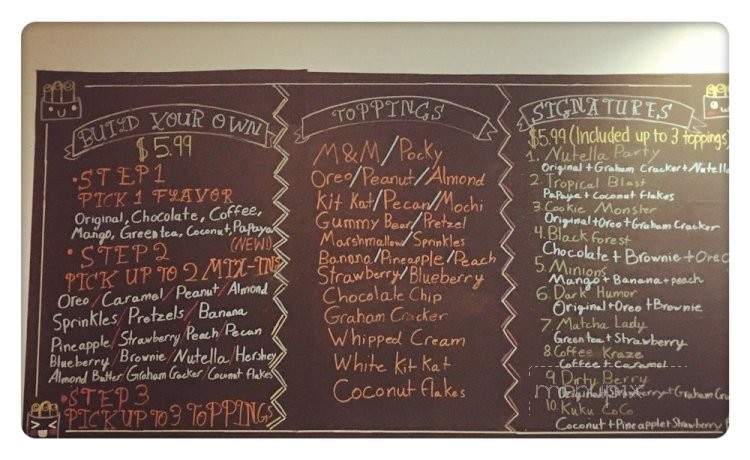 BUILD YOUR OWN
$5.99
• STEP 1
PICK 1 FLAVOR
Original, Chocolate, Coffee,
Mango, Green tea, Coconut, Papaya
(NEW!)
• STEP 2
PICK UP TO 2 MIX-INS
Oreo / Caramel / Peanut / Almond
Sprinkles / Pretzels / Banana
Pineapple / Strawberry / Peach / Pecan
Blueberry / Brownie / Nutella / Hershey
Almond Butter / Graham Cracker / Coconut Flakes
• STEP 3
PICK UP TO 3 TOPPINGS
TOPPINGS
M&M / Pocky
Oreo / Peanut / Almond
Kit Kat / Pecan / Mochi
Gummy Bear / Pretzel
Marshmallow / Sprinkles
Banana / Pineapple / Peach
Strawberry / Blueberry
Chocolate Chip
Graham Cracker
Whipped Cream
White Kit Kat
Coconut Flakes
SIGNATURES
$5.99 (Included up to 3 toppings)
1. Nutella Party
Original + Graham Cracker + Nutella
2. Tropical Blast
Papaya + Coconut Flakes
3. Cookie Monster
Original + Oreo + Graham Cracker
4. Black forest
Chocolate + Brownie + Oreo
5. Minions
Mango + Banana + peach
6. Dark Humor
Original + Oreo + Brownie
7. Matcha Lady
Green tea + Strawberry
8. Coffee Kraze
Coffee + Caramel
9. Dirty Berry
Original + Strawberry + Graham
10. Kuku CoCo
Coconut + Pineapple + Strawberry
menupix